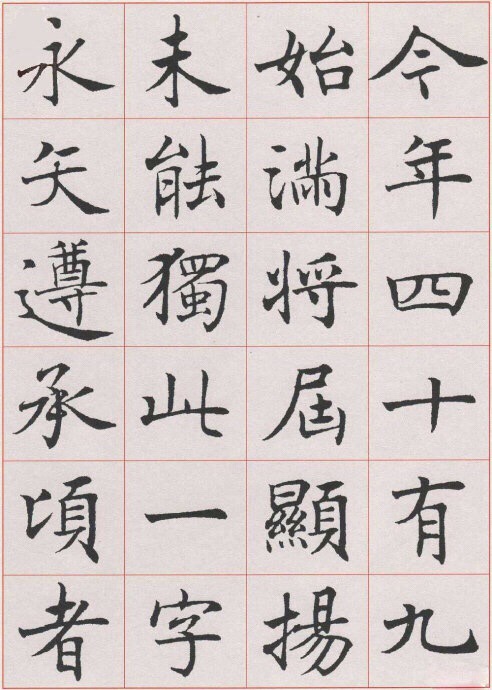 今年四十有九
始満将屆顯揚
未能獨此一字
永矢遵承頃者